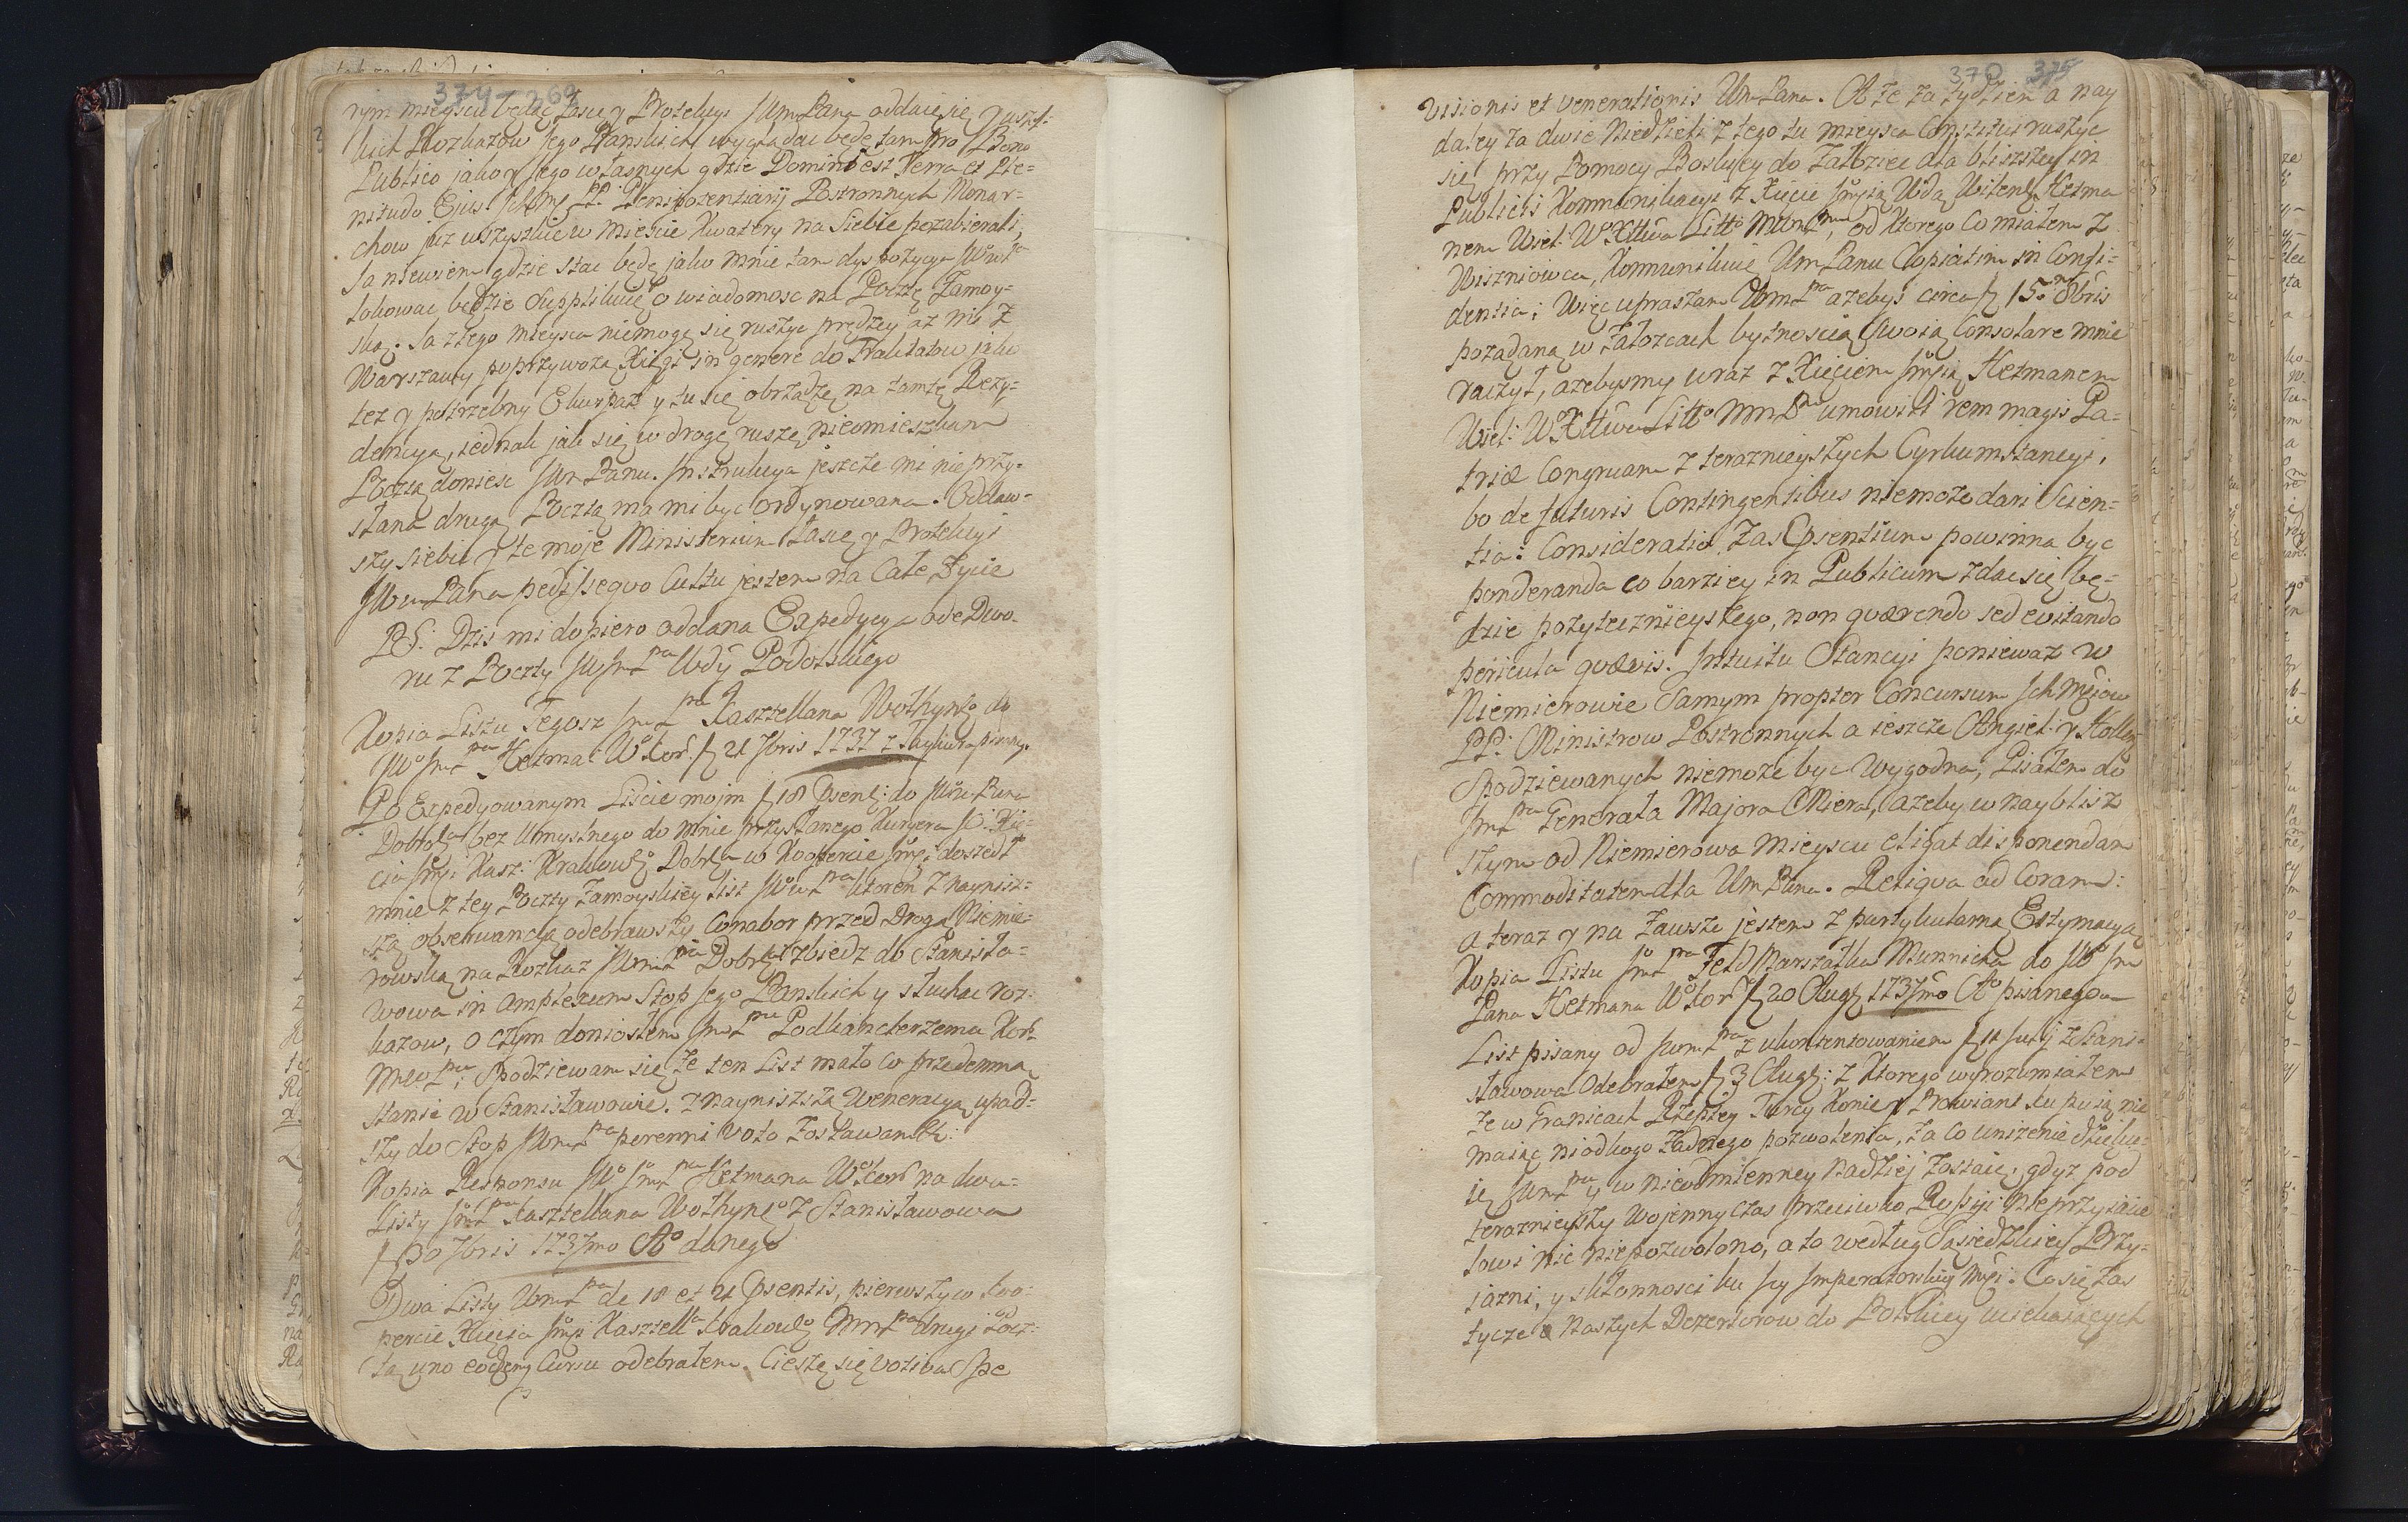 374 369
rym mieyscu będę Łasce y Protekcyi JWm Pana oddaię się y wszel-
kich Rozkazow Jego Pańskich wyglądać będę tam pro Bono
Publico jako y Jego własnych gdzie Domini est Terra et Ple-
nitudo Eius. Ichm PP. Plenipotentiarij Postronnych Monar-
chow już wszyskie w Mieście Kwatery na Siebie pozabierali,
Ja niewiem gdzie stać będę jako mnie tam dyspozycya
lokować będzie Supplikuię o wiadomość na Pocztę Zamoy-
ską. Ja z tego mieysca niemogę się ruszyć prędzey aż mi z
Warszawy poprzywożą Xięgi in genere do Traktatow jako
też y potrzebny Ekwipaż y tu się obrządzę na tamtę Rezy-
dencyą, jednak jak się w drogę ruszę nieomieszkam
Pocztą donieść JWm Panu. Instrukcya jeszcze mi nie przy-
słana drugą Pocztą ma mi byc ordynowana. Oddaw-
szy siebie y te moje Ministerium Łasce y Protekcyi
JWm Pana pedissequo Cultu jestem na Całe Życie
PS: Dziś mi dopiero oddana Expedycya ode Dwo-
ru z Poczty JWJm Pna Wdy Podolskiego
Kopia Listu Tegosz Jm Pna Kasztellana Wołyńg do
JWo Jm Pna Hetma: W Kor: d 21 7bris 1737 z
Po Expedyowanym Liście moim d 18 Psentis: do JWm Pana
Dobrodz bez Umyslnego do mnie przysłanego Kuryera JO Xię-
cia Jmsci Kasz: Krakowg Dobdz w Kopercie Jmsci doszedł
mnie z tey Poczty Zamoyskiey List JWm Pna ktoren z nayniż-
szą obserwancyą odebrawszy Conabor przed Drogą Niemie-
rowską na Rozkaz JWm Pna Dobdz zbiedz do Stanisła-
wowa in amplexum Stop Jego Pańskich y słuchac roz-
kazow, o czym doniosłem Jm Pnu Podkanclerzemu Kor:
Spodziewam się że ten List mało co przedemną
stanie w Stanisławowie. Z nayniższą Weneracyą upad-
szy do Stop JWm Pna perenni voto Zostawam etc:
Kopia Responsu JWo Jm Pna Hetmana W Kor na dwa
Listy Jm Pna Kasztellana Wołyńg z Stanisławowa
d 30 7bris 1737mo Ao danego
Dwa Listy Wm Pna de 18 et 21 Psentis, pierwszy w ko-
percie Xięcia Jmsci Kasztella Krakowg drugi Pocz-
tą uno eodemq Cursu odebrałem. Cieszę się votiva Spe
370 375
visionis et venerationis Wm Pana. A że za tydzień a nay
daley za dwie Niedzieli z tego tu mieysca Constitui ruszyć
się przy Pomocy Boskiey do Załoziec dla bliższey in
Publicis Kommunikacyi z Xięcie Jmscią Wdą Witensk Hetma
nem Wiel: W Xttwa Litto, od ktorego co miałem z
Wiszniowca, Kommunikuię Wm Panu Copiatim in Confi-
dentia; Więc upraszam Wm Pna ażebyś circa d 15 8bris
pożądaną w Załozcach bytnością Swoią Consolare mnie
raczył, ażebysmy wraz z Xięciem Jmscią Hetmanem
Wiel: W Xttwa Litto umowili rem magis Pa-
triæ Congruam z teraznieyszych Cyrkumstancyi,
bo de futuris Contingentibus niemoże dari Scien-
tia: Consideratio zas Psentium powinna byc
ponderanda co barziey in Publicum zdaie się bę-
dzie pożytecznieyszego, non quærendo sed evitando
pericula quævis. Intuitu Stancyi ponieważ w
Niemierowie Samym propter Concursum Ich Msciow
PP: Ministrow Postronnych a jeszcze Angiel: y Holleg
Spodziewanych niemoże byc Wygodna, Pisałem do
Jm Pna Generała Majora Miera, ażeby w naybliż
szym od Niemierowa Mieyscu eligat disponendam
Commoditatem dla Wm Pana. Reliqua ad Coram:
a teraz y na Zawsze jestem z partykularną Estymacyą
Kopia Listu Jm Pna Feld Marszałka Munnicha do JWo Jm
Pana Hetmana W Kor d 20 Aug: 1737mo Ao pisanego
List pisany od Jwm Pna z ukontentowaniem d 11 Julij z Stani-
sławowa Odebrałem d 3 Aug: z ktorego wyrozumiałem
że w Granicach Rzeptey Turcy Konie y Prowiant kupuią nie
maiąc niodkogo żadnego pozwolenia, za co unizenie dziękui-
ię Jwm Pna y w nieodmienney nadziej Zostaię, gdyż pod
teraznieyszy Wojenny Czas przeciwko Rossyi Nieprzyiacie
lowi nic niepozwolono, a to według Sąsiedzkiey Przy-
jazni, y skłonnosci ku Jey Imperatorskiey Msci. Co się zas
tycze Naszych Dezertorow do Polskiey uciekaiących